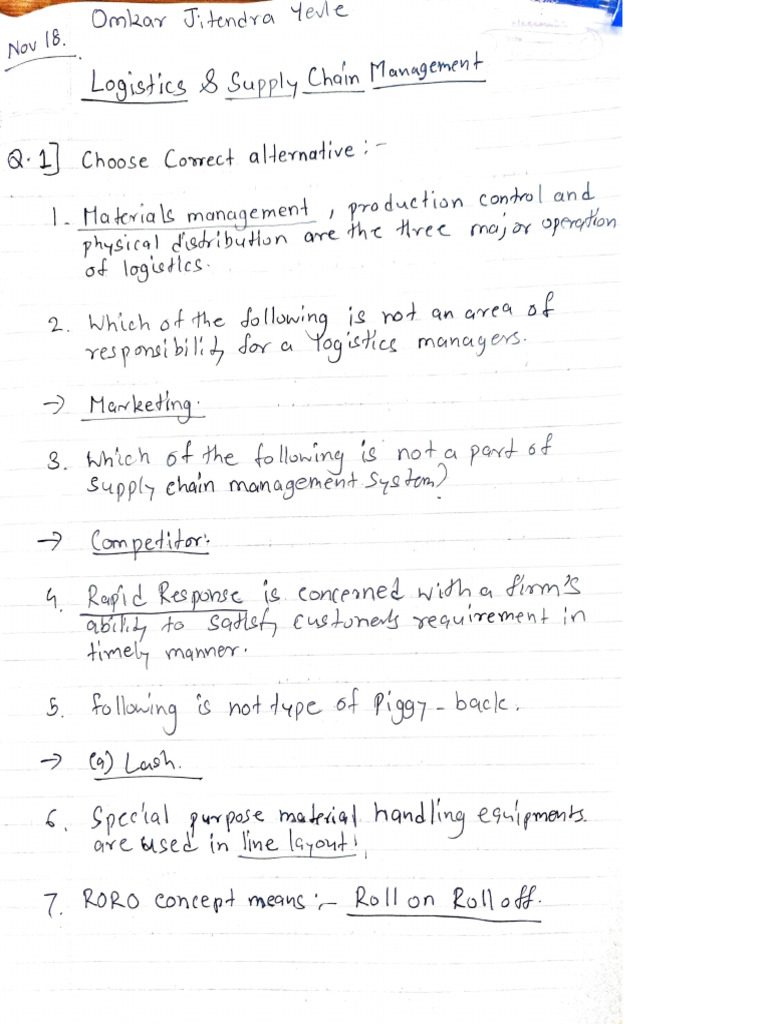 Omkar Jitendra Yevle
Nov 18.
Logistics & Supply Chain Management
Q.1] Choose Correct alternative :-
1. Materials management, production control and
physical distribution are the three major operation
of logistics.
2. Which of the following is not an area of
responsibility for a logistics managers.
→ Marketing.
3. Which of the following is not a part of
supply chain management system?
→ Competitor.
4. Rapid Response is concerned with a firm's
ability to satisfy customers requirement in
timely manner.
5. following is not type of Piggy-back.
→ (a) Lash.
6. Special purpose material handling equipments
are used in line layout.
7. RORO concept means :- Roll on Roll off.